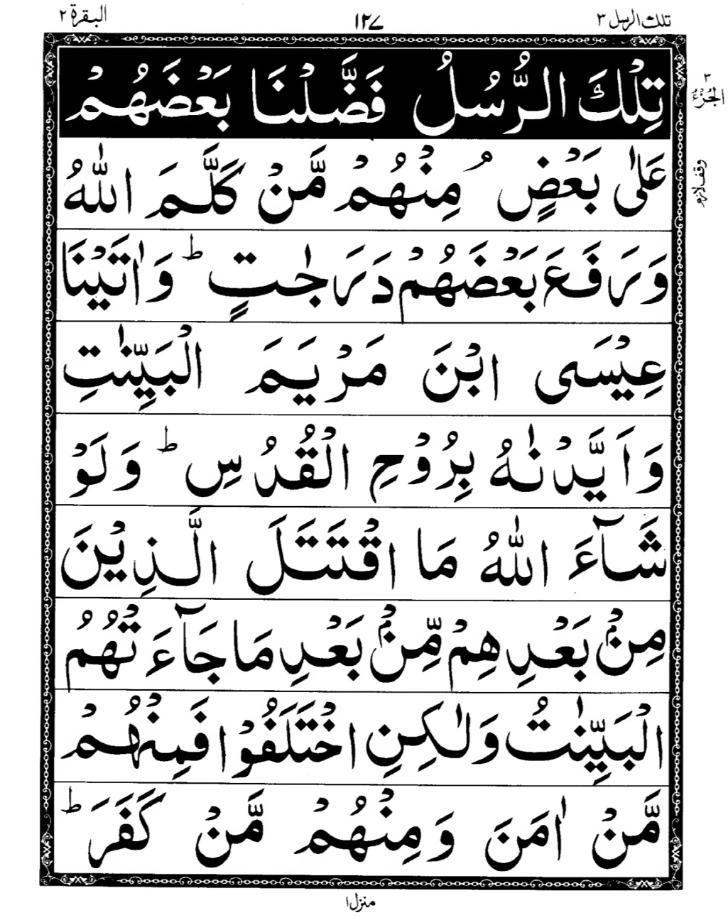 تلك الرسل ٣ ١٢٧ البقرة ٢
٣
الجزء
تِلْكَ الرُّسُلُ فَضَّلْنَا بَعْضَهُمْ
عَلٰى بَعْضٍ ۘ مِنْهُمْ مَّنْ كَلَّمَ اللّٰهُ
وقف لازم
وَرَفَعَ بَعْضَهُمْ دَرَجٰتٍ ؕ وَاٰتَيْنَا
عِيْسَى ابْنَ مَرْيَمَ الْبَيِّنٰتِ
وَاَيَّدْنٰهُ بِرُوْحِ الْقُدُسِ ؕ وَلَوْ
شَآءَ اللّٰهُ مَا اقْتَتَلَ الَّذِيْنَ
مِنْۢ بَعْدِهِمْ مِّنْۢ بَعْدِ مَا جَآءَتْهُمُ
الْبَيِّنٰتُ وَلٰكِنِ اخْتَلَفُوْا فَمِنْهُمْ
مَّنْ اٰمَنَ وَمِنْهُمْ مَّنْ كَفَرَ ؕ
منزل ١